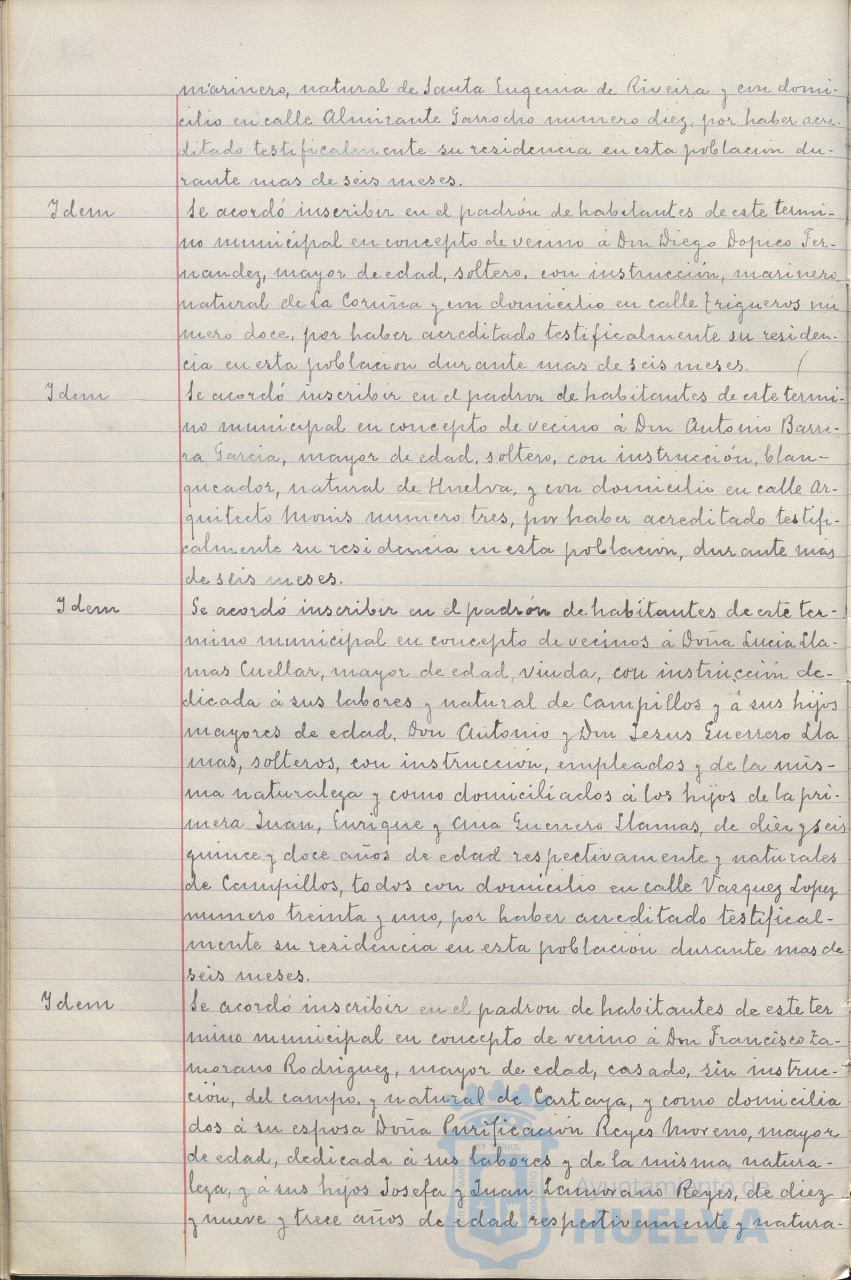 marinero, natural de Santa Eugenia de Riveira y con domi-
cilio en calle Almirante Garrocho numero diez, por haber acre-
ditado testificalmente su residencia en esta población du-
rante mas de seis meses.
Idem Se acordó inscribir en el padrón de habitantes de este termi-
no municipal en concepto de vecino á Don Diego Dopico Fer-
nandez, mayor de edad, soltero, con instrucción, marinero
natural de La Coruña y con domicilio en calle Trigueros nu
mero doce, por haber acreditado testificalmente su residen-
cia en esta poblacion durante mas de seis meses.
Idem Se acordó inscribir en el padron de habitantes de este termi-
no municipal en concepto de vecino á Don Antonio Barre-
ra Garcia, mayor de edad, soltero, con instrucción, blan-
queador, natural de Huelva, y con domicilio en calle Ar-
quitecto Monis numero tres, por haber acreditado testifi-
calmente su residencia en esta población, durante mas
de seis meses.
Idem Se acordó inscribir en el padrón de habitantes de este ter-
mino municipal en concepto de vecinos á Doña Lucia Lla-
mas Cuellar, mayor de edad, viuda, con instrucción de-
dicada á sus labores y natural de Campillos y á sus hijos
mayores de edad, Don Antonio y Don Jesus Guerrero Lla
mas, solteros, con instrucción, empleados y de la mis-
ma naturaleza y como domiciliados á los hijos de la pri-
mera Juan, Enrique y Ana Guerrero Llamas, de diez y seis
quince y doce años de edad respectivamente y naturales
de Campillos, todos con domicilio en calle Vazquez Lopez
numero treinta y uno, por haber acreditado testifical-
mente su residencia en esta población durante mas de
seis meses.
Idem Se acordó inscribir en el padron de habitantes de este ter
mino municipal en concepto de vecino á Don Francisco Za-
morano Rodriguez, mayor de edad, casado, sin instruc-
ción, del campo, y natural de Cartaya, y como domicilia
dos á su esposa Doña Purificación Reyes Moreno, mayor
de edad, dedicada á sus labores y de la misma natura-
leza, y á sus hijos Josefa y Juan Zamorano Reyes, de diez
y nueve y trece años de edad respectivamente y natura-
Ayuntamiento de
HUELVA